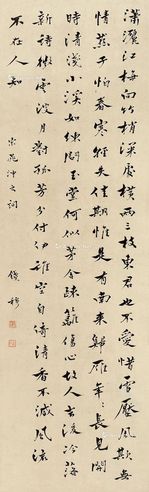 瀟灑江梅向竹梢深處橫兩三枝東君也不愛惜雪壓風欺無
情燕子怕春寒輕失佳期惟是有南來歸雁年々長見開
時清淺小溪如練問玉堂何似茅舍疏籬傷心故人去後冷落
新詩微雲淡月對孤芳分付伊誰空自倚清香不減風流
不在人知
宋晁沖之詞
錢穆